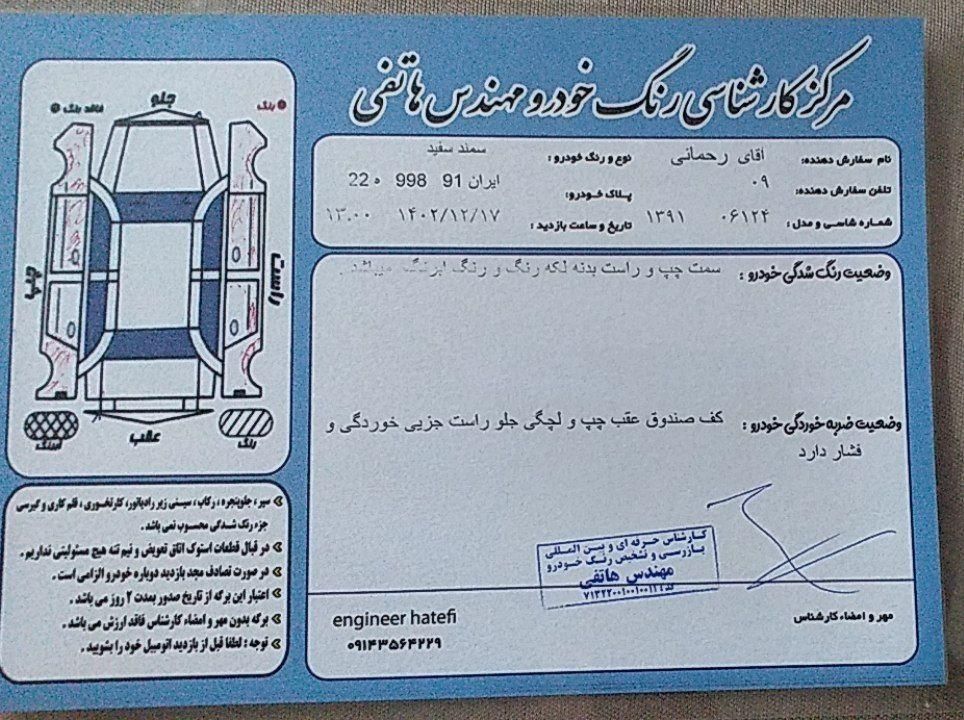 مرکز کارشناسی رنگ خودرو مهندس هاتفی
نام سفارش دهنده: اقای رحمانی
نوع و رنگ خودرو: سمند سفید
تلفن سفارش دهنده: ۰۹
پلاک خودرو: ایران 91 998 ه 22
شماره شاسی و مدل: ۰۶۱۲۴ ۱۳۹۱
تاریخ و ساعت بازدید: ۱۴۰۲/۱۲/۱۷ ۱۳:۰۰
وضعیت رنگ شدگی خودرو: سمت چپ و راست بدنه لکه رنگ و رنگ ابرنگ میباشد
وضعیت ضربه خوردگی خودرو: کف صندوق عقب چپ و لچگی جلو راست جزیی خوردگی و
فشار دارد
کارشناس حرفه ای و بین المللی
بازرسی و تشخیص رنگ خودرو
مهندس هاتفی
مهر و امضاء کارشناس
engineer hatefi
۰۹۱۴۳۵۶۴۲۲۹
رنگ
جلو
فاقد رنگ
راست
چپ
رنگ
عقب
آبرنگ
سپر، جلوپنجره، رکاب، سینی زیر رادیاتور، کارتخوری، قلم کاری و گیرسی
جزء رنگ شدگی محسوب نمی باشد.
در قبال قطعات استوک اتاق تعویض و نیم تنه هیچ مسئولیتی نداریم.
در صورت تصادف مجدد بازدید دوباره خودرو الزامی است.
اعتبار این برگه از تاریخ صدور بمدت ۲ روز می باشد.
برگه بدون مهر و امضاء کارشناس فاقد ارزش می باشد.
توجه: لطفا قبل از بازدید اتومبیل خود را بشویید.